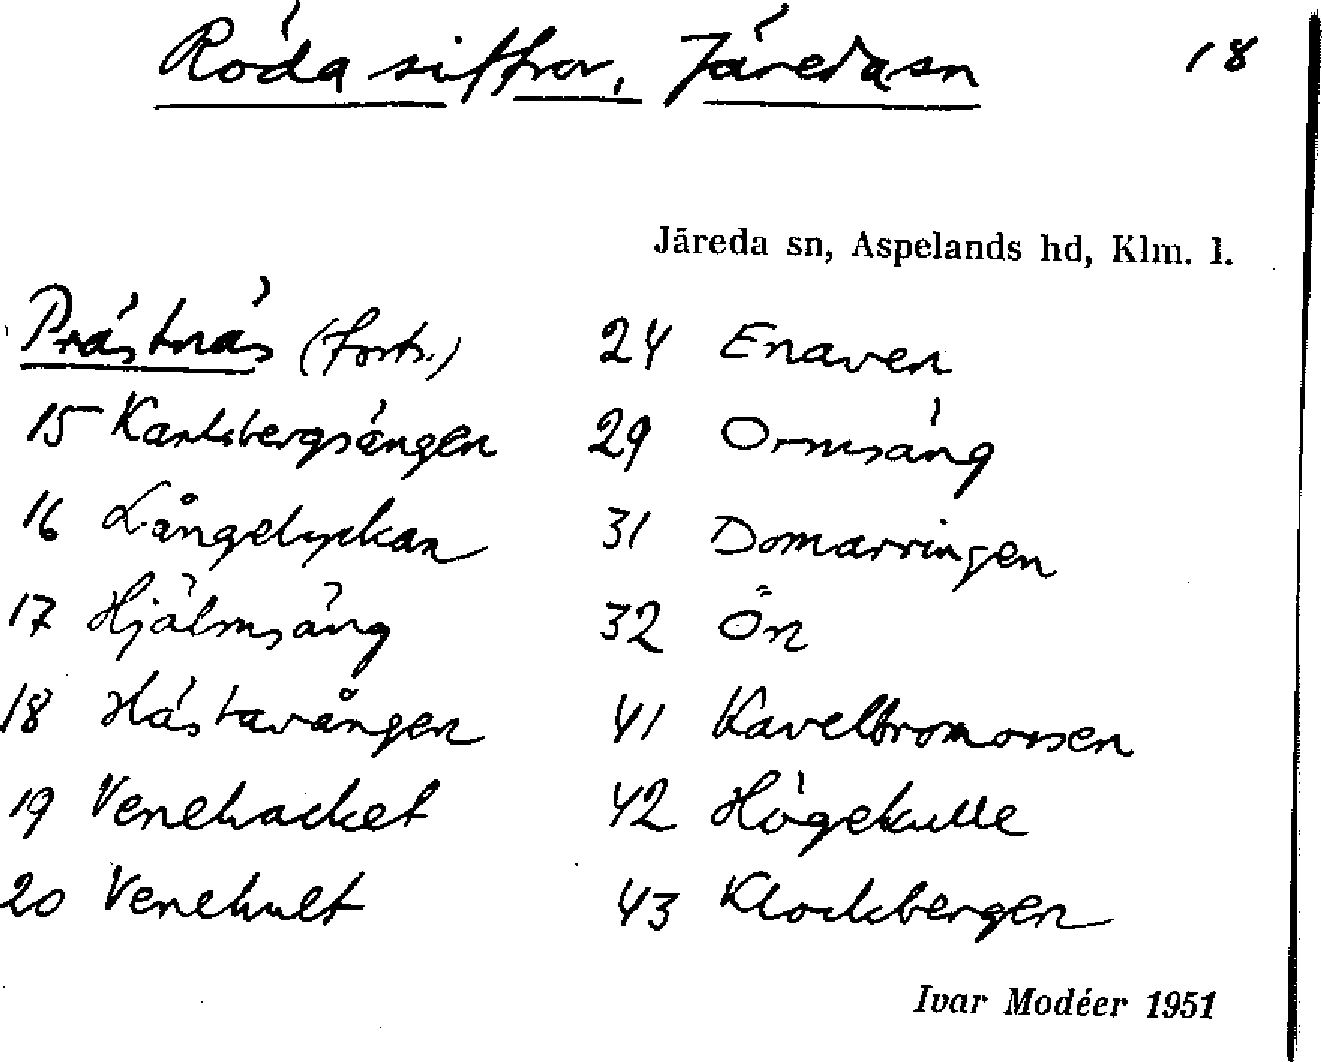 Röda siffror, Järeda sn 18
Järeda sn, Aspelands hd, Klm. l.
Prästnäs (forts.)
15 Karlsbergsängen
16 Långelyckan
17 Hjälmsäng
18 Hästavången
19 Venehacket
20 Venehult
24 Enaven
29 Ormsäng
31 Domarringen
32 Ön
41 Kavelbromossen
42 Högekulle
43 Klockbergen
Ivar Modéer 1951